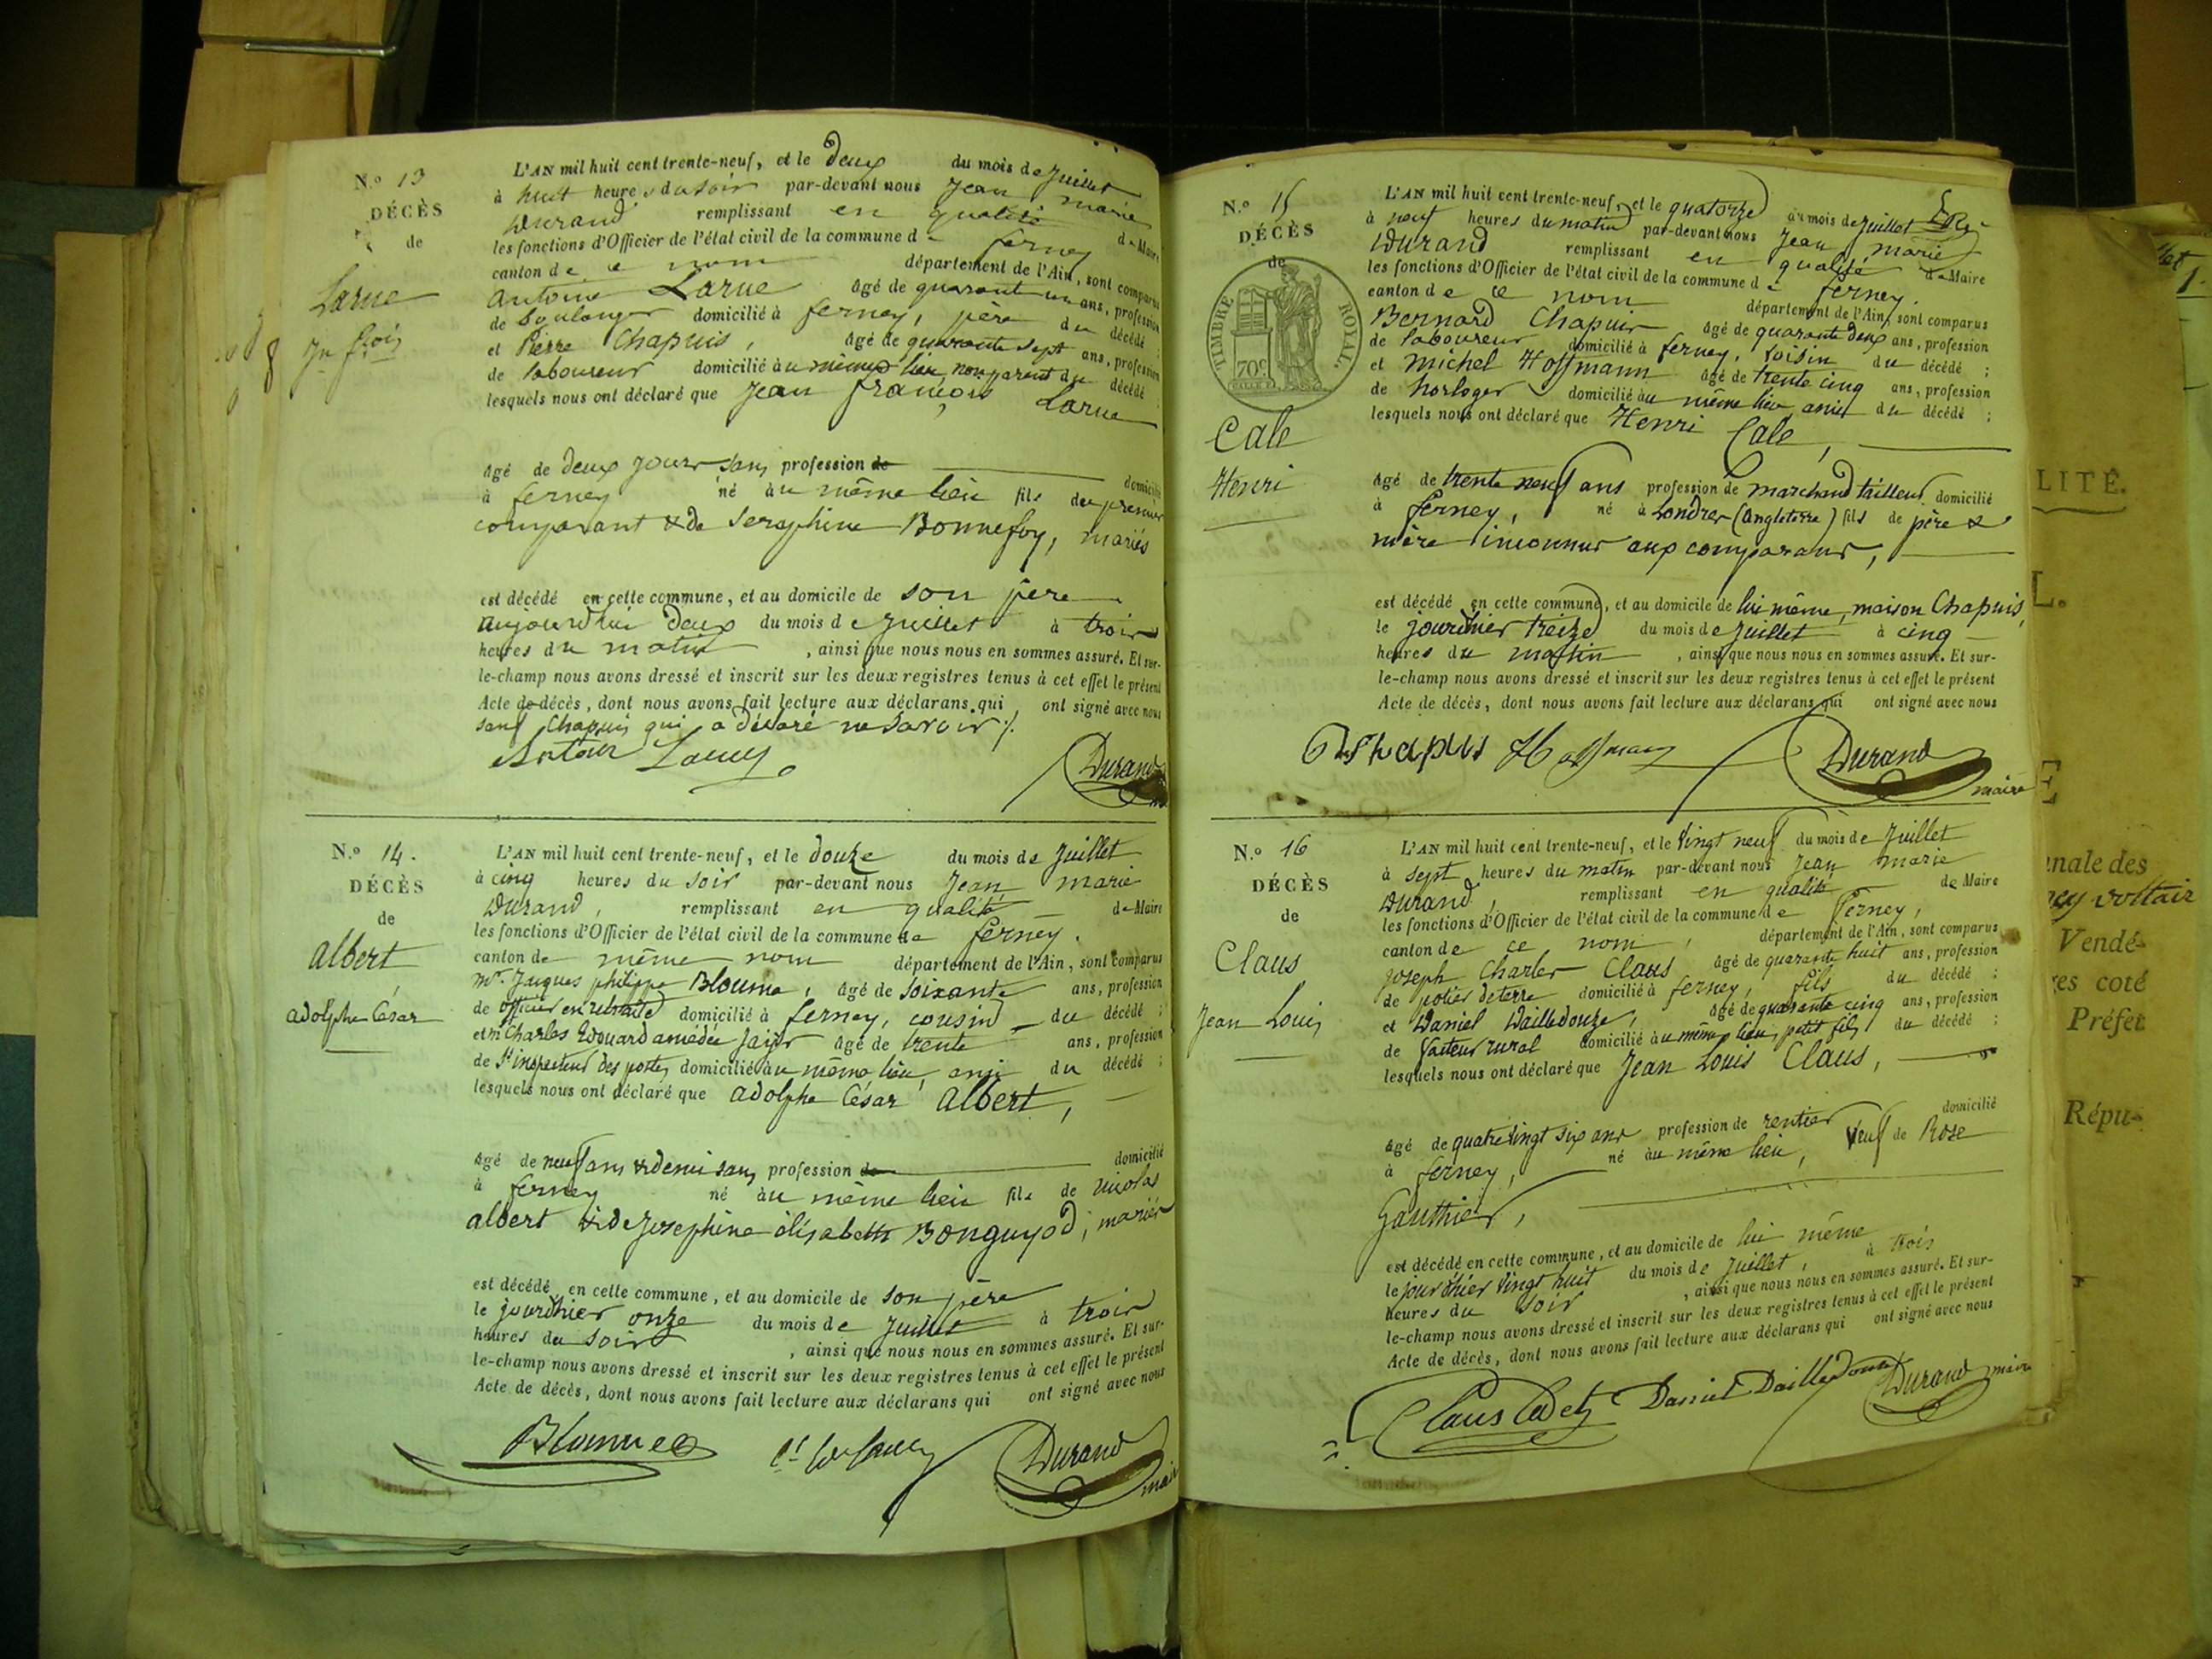 N.º 13
DÉCÈS
de
Larue
Jn. fçois
L'AN mil huit cent trente-neuf, et le deux du mois de Juillet
à huit heures du soir par-devant nous Jean marie
Durand remplissant en qualité de Maire
les fonctions d'Officier de l'état civil de la commune de ferney
canton de ce nom département de l'Ain, sont comparus
antoine Larue âgé de quarant un ans, profession
de boulanger domicilié à ferney, père du décédé ;
et Pierre Chapuis, âgé de quarante sept ans, profession
de laboureur domicilié au même lieu, non parent du décédé ;
lesquels nous ont déclaré que Jean françois Larue
âgé de deux jours sans profession de domicilié
à ferney né au même lieu fils du premier
comparant & de Seraphine Bonnefoy, mariés
est décédé en cette commune, et au domicile de son père
aujourd'hui deux du mois de Juillet à trois
heures du matin, ainsi que nous nous en sommes assuré. Et sur-
le-champ nous avons dressé et inscrit sur les deux registres tenus à cet effet le présent
Acte de décès, dont nous avons fait lecture aux déclarans qui ont signé avec nous
sauf Chapuis qui a déclaré ne savoir ./.
Durand
N.º 14.
DÉCÈS
de
albert
adolphe César
L'AN mil huit cent trente-neuf, et le douze du mois de Juillet
à cinq heures du soir par-devant nous Jean marie
Durand, remplissant en qualité de Maire
les fonctions d'Officier de l'état civil de la commune de ferney.
canton de même nom département de l'Ain, sont comparus
Mr. Jacques philippe Bloume, âgé de soixante ans, profession
de officier en retraite domicilié à ferney, cousin du décédé ;
et Mr Charles Edouard amédée âgé de trente ans, profession
de St inspecteur des postes domicilié au même lieu, ami du décédé ;
lesquels nous ont déclaré que adolphe César albert,
âgé de neuf ans & demi sans profession de domicilié
à ferney né au même lieu fils de nicolas
albert & de Josephine élisabeth Bonguyod, mariés
est décédé en cette commune, et au domicile de son père
le jourdhier onze du mois de Juillet à trois
heures du soir, ainsi que nous nous en sommes assuré. Et sur-
le-champ nous avons dressé et inscrit sur les deux registres tenus à cet effet le présent
Acte de décès, dont nous avons fait lecture aux déclarans qui ont signé avec nous
Durand
maire
N.º 15
DÉCÈS
de
TIMBRE ROYAL.
70c
Cale
Henri
L'AN mil huit cent trente-neuf, et le quatorze du mois de Juillet
à neuf heures du matin par-devant nous Jean marie
Durand remplissant en qualité de Maire
les fonctions d'Officier de l'état civil de la commune de ferney.
canton de ce nom département de l'Ain, sont comparus
Bernard Chapuis âgé de quarante deux ans, profession
de laboureur domicilié à ferney, voisin du décédé ;
et michel Hoffmann âgé de trente cinq ans, profession
de horloger domicilié au même lieu, ami du décédé ;
lesquels nous ont déclaré que Henri Cale,
âgé de trente neuf ans profession de marchand tailleur domicilié
à ferney, né à Londres (angleterre) fils de père &
mère inconnus aux comparans,
est décédé en cette commune, et au domicile de lui même, maison Chapuis,
le jourdhier treize du mois de Juillet à cinq
heures du matin, ainsi que nous nous en sommes assuré. Et sur-
le-champ nous avons dressé et inscrit sur les deux registres tenus à cet effet le présent
Acte de décès, dont nous avons fait lecture aux déclarans qui ont signé avec nous
Durand
maire
N.º 16
DÉCÈS
de
Claus
Jean Louis
L'AN mil huit cent trente-neuf, et le vingt neuf du mois de Juillet
à sept heures du matin par-devant nous Jean marie
Durand, remplissant en qualité de Maire
les fonctions d'Officier de l'état civil de la commune de ferney,
canton de ce nom, département de l'Ain, sont comparus
Joseph Charles Claus âgé de quarante huit ans, profession
de potier de terre domicilié à ferney, fils du décédé ;
et Daniel Dailledouze, âgé de quarante cinq ans, profession
de facteur rural domicilié au même lieu, petit fils du décédé ;
lesquels nous ont déclaré que Jean Louis Claus,
âgé de quatre vingt six ans profession de rentier domicilié
à ferney, né au même lieu, veuf de Rose
Gauthier,
est décédé en cette commune, et au domicile de lui même
le jourdhier vingt huit du mois de Juillet, à trois
heures du soir, ainsi que nous nous en sommes assuré. Et sur-
le-champ nous avons dressé et inscrit sur les deux registres tenus à cet effet le présent
Acte de décès, dont nous avons fait lecture aux déclarans qui ont signé avec nous
Claus Cadet Daniel Dailledouze Durand maire
LITÉ.
L.
E
Vendé-
coté
Préfet
Répu-